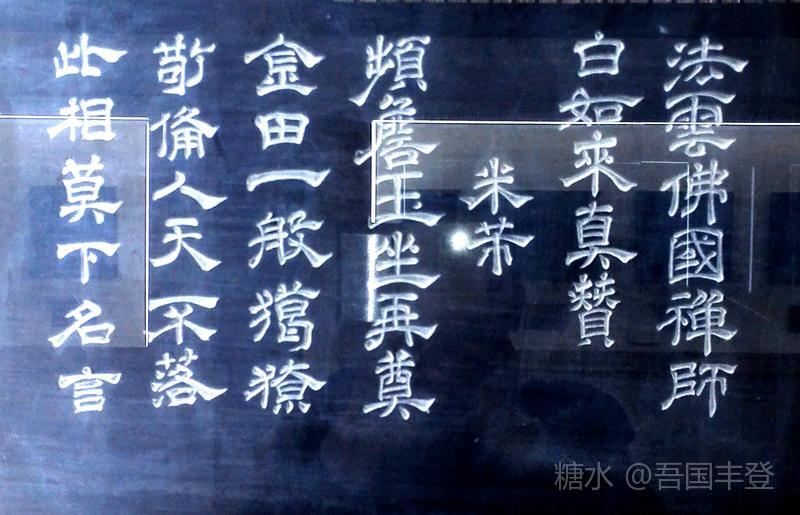 法雲佛國禪師
白如來真贊
米芾
頻詹玉坐再奠
金田一般獦獠
敬備人天不落
此相莫下名言
糖水 @吾国丰登